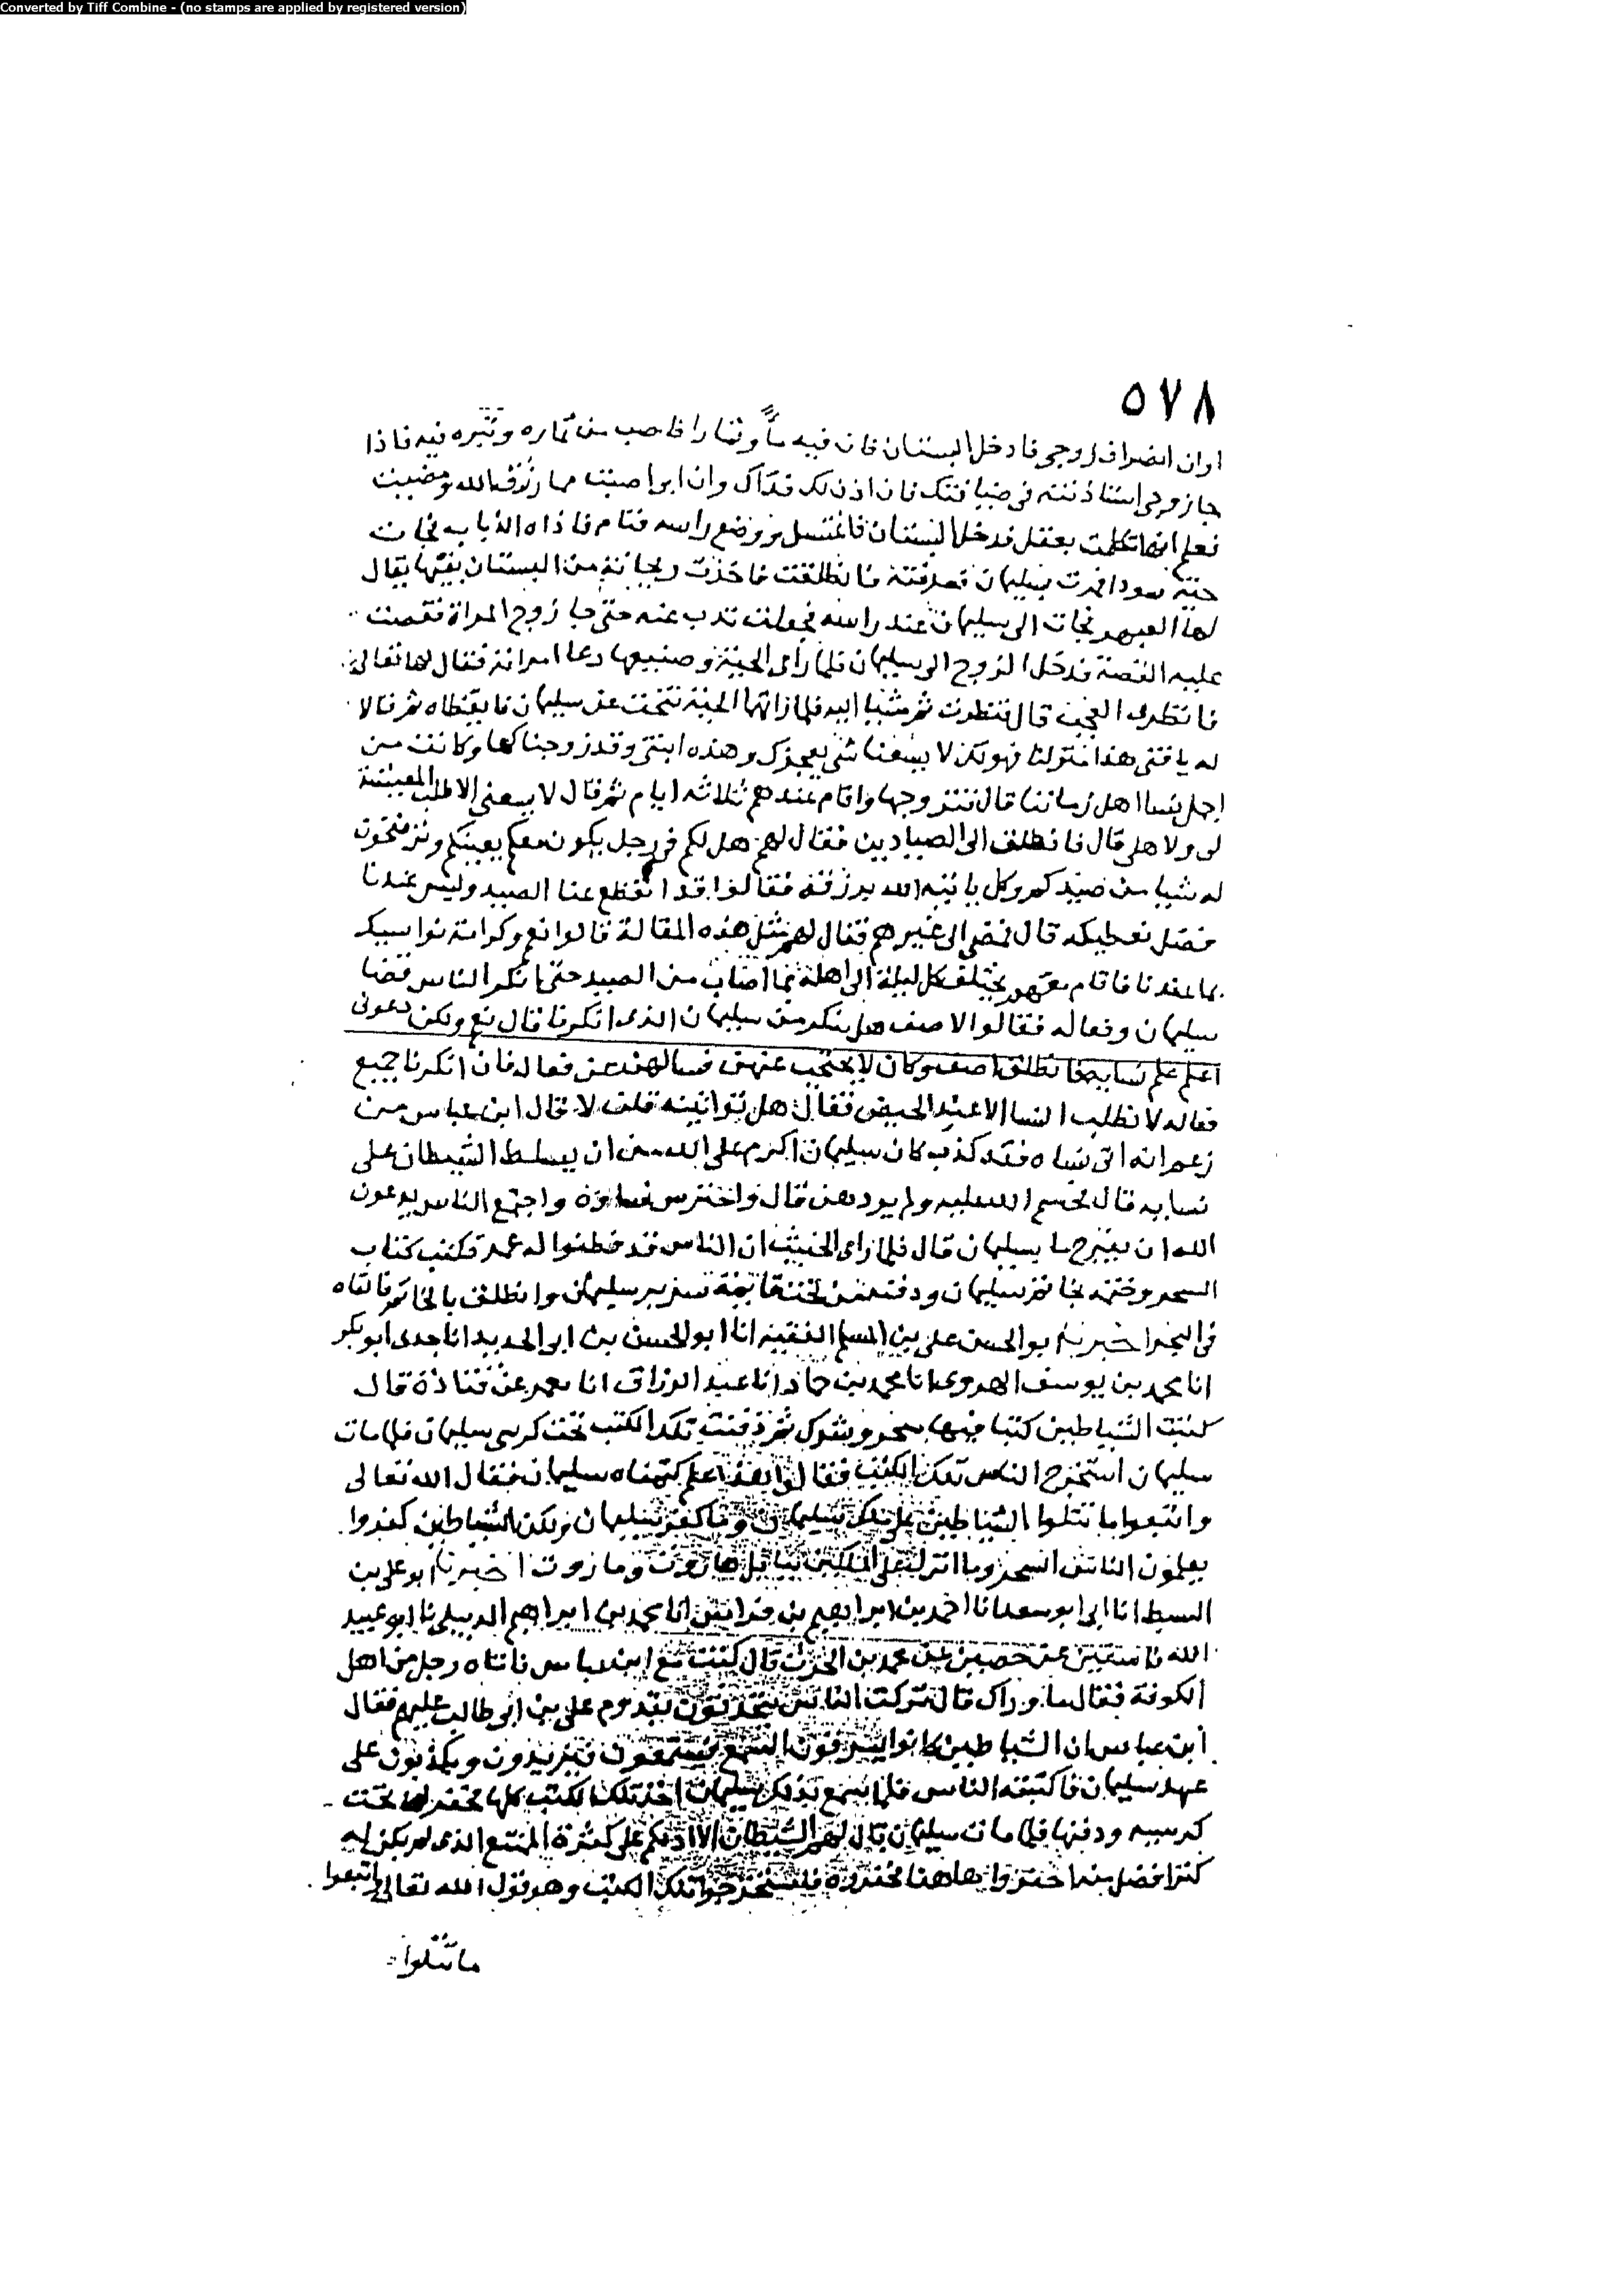 Converted by Tiff Combine - (no stamps are applied by registered version)
٥٧٨
اوان انصراف زوجى فادخل البستان فان فيه ماً وثمارا فاصب من ثماره وتبره فيه فاذا
جا زوجى استاذنته فى ضيافتك فان اذن لك فذاك وان ابى اصبت مما رزق الله ومضيت
فعلم انها تكلمت بعقل فدخل البستان فاغتسل ووضع راسه فنام فاذاه الذباب فجات
حية سودا فمرت بسليمان فعرفته فانطلقت فاخذت ريحانة من البستان بفيها يقال
لها العبهر فجات الى سليمان عند راسه فجعلت تذب عنه حتى جا زوج المراة فقصت
عليه القصة فدخل الزوج الى سليمان فلما راى الحية وصنيعها دعا امراته فقال لها تعالى
فانظرى العجب قال فنظرت ثم مشيا اليه فلما راتهما الحية تنحت عن سليمان فايقظاه ثم قالا
له يا فتى هذا منزلنا فهو لك لا يسعنا شى يعجزك وهذه ابنتى وقد زوجناكها وكانت من
اجل نسا اهل زماننا قال فتزوجها واقام عندهم ثلاثه ايام ثم قال لا يسعنى الا طلب المعيشة
لى ولاهلى قال فانطلق الى الصيادين فقال لهم هل لكم فى رجل يكون معكم يعينكم وترضخون
له شيا من صيدكم وكل ياتيه الله برزقه فقالوا قد انقطع عنا الصيد وليس عندنا
فضل نعطيكه قال فمضى الى غيرهم فقال لهم مثل هذه المقالة قالوا نعم وكرامة نواسيك
بما عندنا فاقام معهم يختلف كل ليلة الى اهله بما اصاب من الصيد حتى انكر الناس قضا
سليمان وفعاله فقالوا لاصف هل ينكر من سليمان الذى انكرنا قال نعم ولكن دعونى
اعلم علم نسايه فانطلق اصف وكان لا يحتجب عنهن فسالهن عن فعاله فان انكرنا جميع
فعاله لا نطلب النسا الا عند الحيض فقال هل تواتينه قلت لا قال ابن عباس من
زعم انه اتى نساه فقد كذب كان سليمان اكرم على الله من ان يسلط الشيطان على
نسايه قال فحسم الله عليه ولم يردهن قال واحترس نساوه واجتمع الناس يدعون
الله ان يفرج ما بسليمان قال فلما راى الخبيث ان الناس قد فطنوا له عمد فكتب كتاب
السحر وختمه بخاتم سليمان ودفنه تحت قايمة سرير سليمان وانطلق بالخاتم فالقاه
فى البحر اخبرنا ابو الحسن على بن المسلم الفقيه انا ابو الحسن بن ابى الحديد انا جدى ابو بكر
انا محمد بن يوسف الهروى انا محمد بن حماد انا عبد الرزاق انا معمر عن قتادة قال
كتبت الشياطين كتبا فيها سحر وشرك ثم دفنت تلك الكتب تحت كرسى سليمان فلما مات
سليمان استخرج الناس تلك الكتب فقالوا هذا علم كتمناه سليمان فقال الله تعالى
واتبعوا ما تتلوا الشياطين على ملك سليمان وما كفر سليمان ولكن الشياطين كفروا
يعلمون الناس السحر وما انزل على الملكين ببابل هاروت وماروت اخبرنا ابو على بن
السبط انا ابى ابو سعد انا احمد بن ابراهيم بن فراس انا محمد بن ابراهيم الديبلى نا ابو عبيد
الله نا سفين عن حصين عن محمد بن الحرث قال كنت مع ابن عباس فاتاه رجل من اهل
الكوفة فقال ما وراك قال تركت الناس يتحدثون بقدوم على بن ابى طالب عليهم فقال
ابن عباس ان الشياطين كانوا يسترقون السمع فيستمعون فيزيدون ويكذبون على
عهد سليمان فاكتبته الناس فلما سمع بذلك سليمان اخذ تلك الكتب كلها فحفر لها تحت
كرسيه ودفنها فلما مات سليمان قال لهم الشيطان الا ادلكم على كنزه الممنع الذى لم يكن له
كنز افضل منه احفروا هاهنا فحفروه فاستخرجوا تلك الكتب وهو قول الله تعالى واتبعوا
ما تتلوا